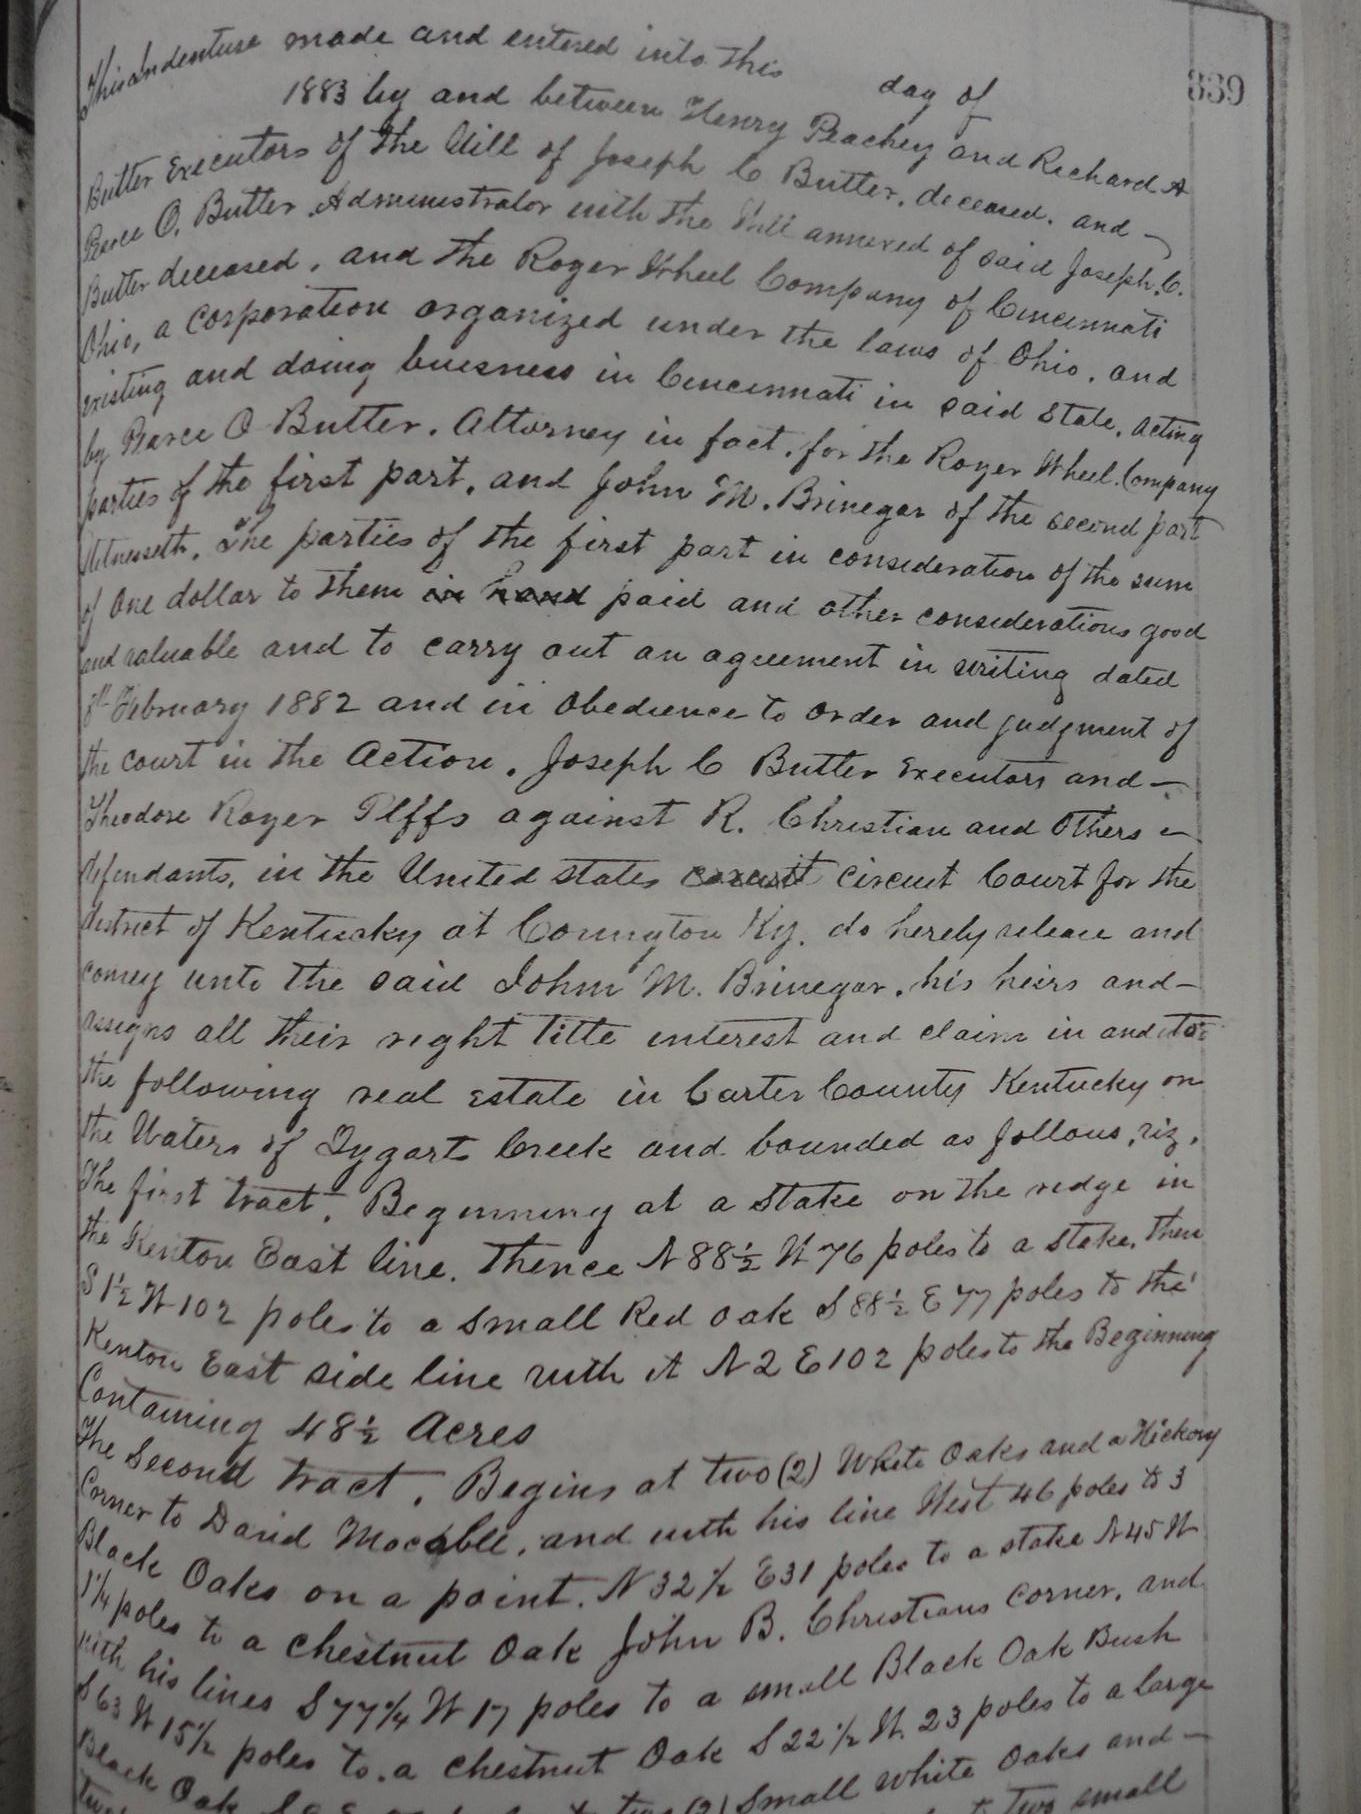 339
This indenture made and entered into this day of
1883 by and between Henry Peachey and Richard A
Butler Executors of the Will of Joseph C Butler, deceased. and
Pearce O. Butler Administrator with the Will annexed of said Joseph C.
Butler deceased, and the Roger Wheel Company of Cincinnati
Ohio, a corporation organized under the laws of Ohio, and
existing and doing buisness in Cincinnati in said State, acting
by Pearce O Butler. Attorney in fact, for the Roger Wheel Company
parties of the first part, and John M. Brinegar of the second part
Witnesseth, The parties of the first part in consideration of the sum
of One dollar to them in hand paid and other considerations good
and valuable and to carry out an agreement in writing dated
8th February 1882 and in Obedience to order and judgment of
the court in the Action, Joseph C Butler Executors and
Theodore Roger Plffs against R. Christian and Others
defendants, in the United states circuit Court for the
district of Kentucky at Covington Ky. do hereby release and
convey unto the said John M. Brinegar, his heirs and
assigns all their right title interest and claim in and to
the following real Estate in Carter County Kentucky on
the Waters of Tygarts Creek and bounded as follows, viz,
The first tract. Beginning at a Stake on the ridge in
the Kenton East line. Thence N 88½ W 76 poles to a stake, then
S 1½ W 102 poles to a small Red oak S 88½ E 77 poles to the
Kenton East side line with it N 2 E 102 poles to the Beginning
Containing 48½ Acres
The Second tract. Begins at two (2) White Oaks and a Hickory
Corner to David Mocabee, and with his line West 46 poles to 3
Black Oaks on a point. N 32½ E 31 poles to a stake N 45 W
1¼ poles to a chestnut Oak John B. Christians corner, and
with his lines S 77¼ W 17 poles to a small Black Oak Bush
S 63 W 15½ poles to a chestnut Oak S 22½ W. 23 poles to a large
Black Oak two (2) Small white Oaks and
to two small